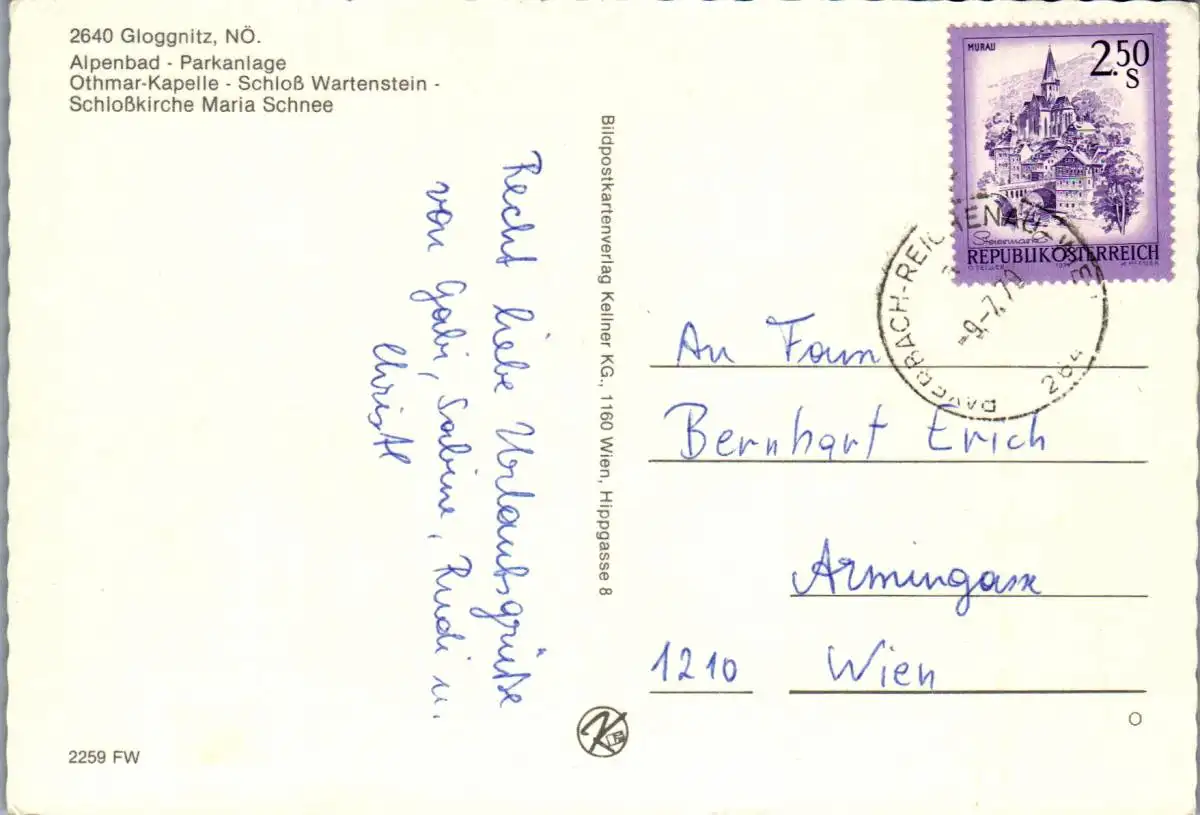 2640 Gloggnitz, NÖ.
Alpenbad - Parkanlage
Othmar-Kapelle - Schloß Wartenstein -
Schloßkirche Maria Schnee
Recht liebe Urlaubsgrüße
von Gabi, Sabine, Rudi u.
Christl
2259 FW
Bildpostkartenverlag Kellner KG., 1160 Wien, Hippgasse 8
MURAU
2.50
S
Steiermark
REPUBLIK ÖSTERREICH
PAYERBACH-REICHENAU
264
An Fam
Bernhart Erich
Armingasse
1210 Wien